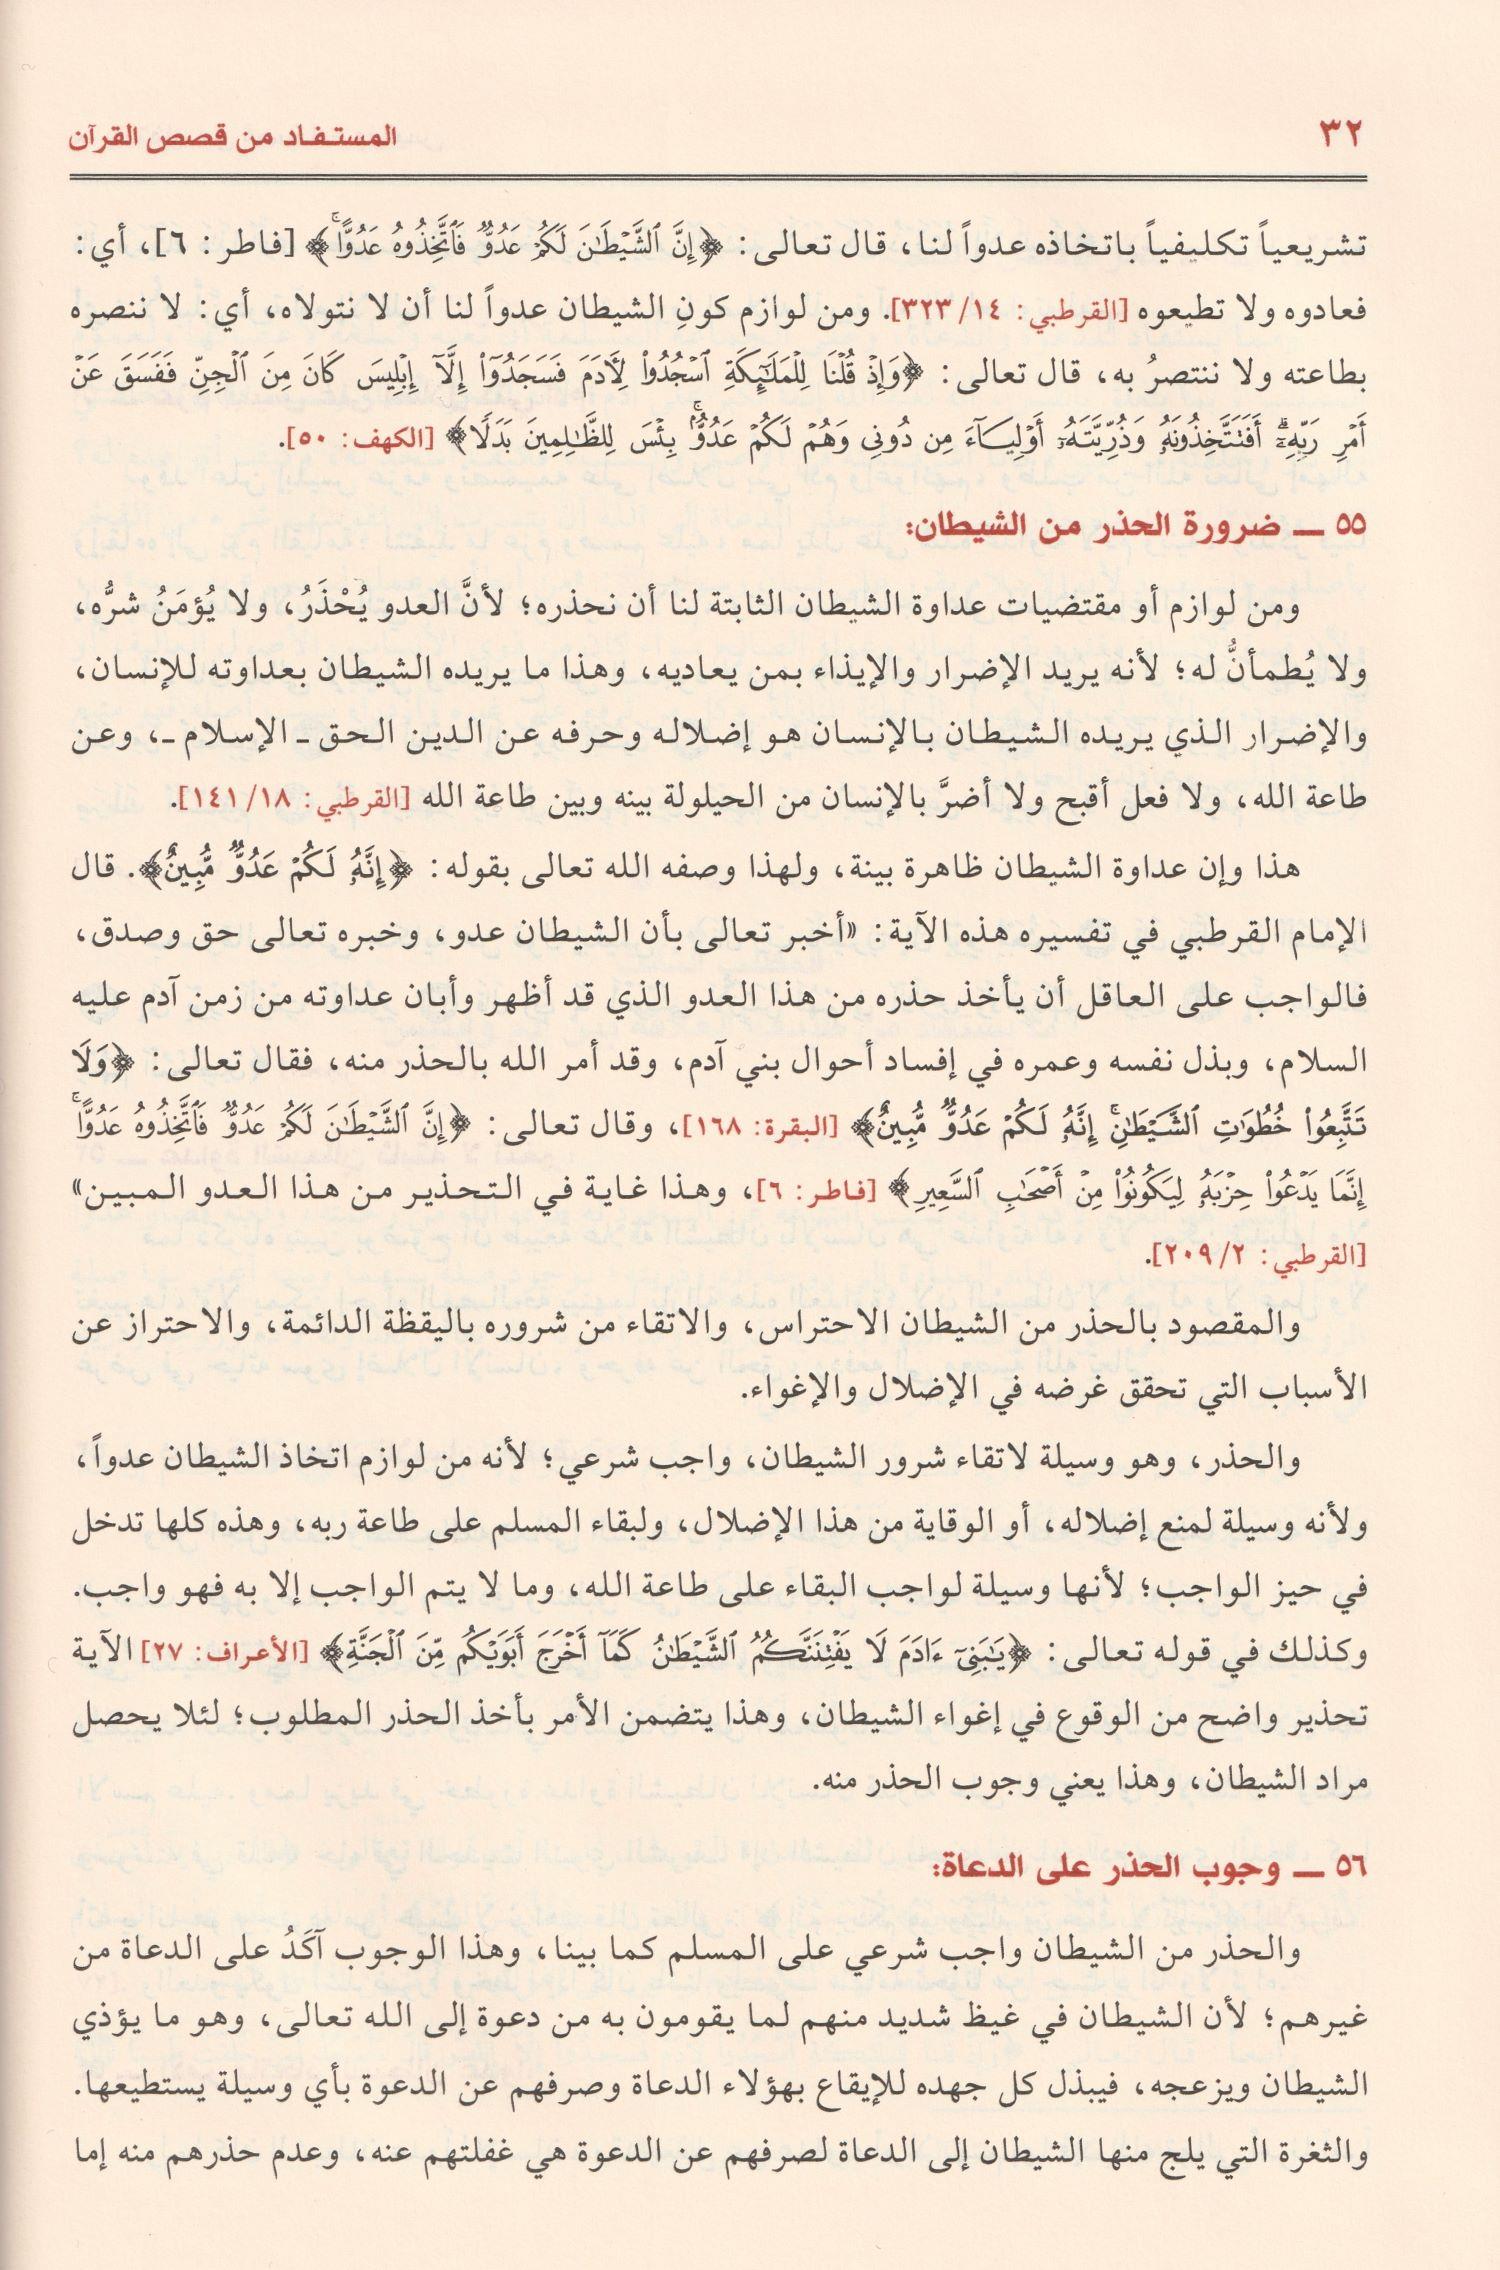 ٣٢
المستفاد من قصص القرآن
تشريعياً تكليفياً باتخاذه عدواً لنا، قال تعالى: ﴿إِنَّ ٱلشَّيْطَٰنَ لَكُمْ عَدُوٌّ فَٱتَّخِذُوهُ عَدُوًّا ۚ﴾ [فاطر: ٦]، أي:
فعادوه ولا تطيعوه [القرطبي: ٣٢٣/١٤]. ومن لوازم كونِ الشيطان عدواً لنا أن لا نتولاه، أي: لا ننصره
بطاعته ولا ننتصرُ به، قال تعالى: ﴿وَإِذْ قُلْنَا لِلْمَلَٰٓئِكَةِ ٱسْجُدُوا۟ لِءَادَمَ فَسَجَدُوٓا۟ إِلَّآ إِبْلِيسَ كَانَ مِنَ ٱلْجِنِّ فَفَسَقَ عَنْ
أَمْرِ رَبِّهِۦٓ ۗ أَفَتَتَّخِذُونَهُۥ وَذُرِّيَّتَهُۥٓ أَوْلِيَآءَ مِن دُونِى وَهُمْ لَكُمْ عَدُوٌّۢ ۚ بِئْسَ لِلظَّٰلِمِينَ بَدَلًا﴾ [الكهف: ٥٠].
٥٥ ـــ ضرورة الحذر من الشيطان:
ومن لوازم أو مقتضيات عداوة الشيطان الثابتة لنا أن نحذره؛ لأنَّ العدو يُحْذَرُ، ولا يُؤمَنُ شرُّه،
ولا يُطمأنُّ له؛ لأنه يريد الإضرار والإيذاء بمن يعاديه، وهذا ما يريده الشيطان بعداوته للإنسان،
والإضرار الذي يريده الشيطان بالإنسان هو إضلاله وحرفه عن الدين الحق ـ الإسلام ـ، وعن
طاعة الله، ولا فعل أقبح ولا أضرَّ بالإنسان من الحيلولة بينه وبين طاعة الله [القرطبي: ١٤١/١٨].
هذا وإن عداوة الشيطان ظاهرة بينة، ولهذا وصفه الله تعالى بقوله: ﴿إِنَّهُۥ لَكُمْ عَدُوٌّ مُّبِينٌ﴾. قال
الإمام القرطبي في تفسيره هذه الآية: «أخبر تعالى بأن الشيطان عدو، وخبره تعالى حق وصدق،
فالواجب على العاقل أن يأخذ حذره من هذا العدو الذي قد أظهر وأبان عداوته من زمن آدم عليه
السلام، وبذل نفسه وعمره في إفساد أحوال بني آدم، وقد أمر الله بالحذر منه، فقال تعالى: ﴿وَلَا
تَتَّبِعُوا۟ خُطُوَٰتِ ٱلشَّيْطَٰنِ ۚ إِنَّهُۥ لَكُمْ عَدُوٌّ مُّبِينٌ﴾ [البقرة: ١٦٨]، وقال تعالى: ﴿إِنَّ ٱلشَّيْطَٰنَ لَكُمْ عَدُوٌّ فَٱتَّخِذُوهُ عَدُوًّا ۚ
إِنَّمَا يَدْعُوا۟ حِزْبَهُۥ لِيَكُونُوا۟ مِنْ أَصْحَٰبِ ٱلسَّعِيرِ﴾ [فاطر: ٦]، وهذا غاية في التحذير من هذا العدو المبين»
[القرطبي: ٢٠٩/٢].
والمقصود بالحذر من الشيطان الاحتراس، والاتقاء من شروره باليقظة الدائمة، والاحتراز عن
الأسباب التي تحقق غرضه في الإضلال والإغواء.
والحذر، وهو وسيلة لاتقاء شرور الشيطان، واجب شرعي؛ لأنه من لوازم اتخاذ الشيطان عدواً،
ولأنه وسيلة لمنع إضلاله، أو الوقاية من هذا الإضلال، ولبقاء المسلم على طاعة ربه، وهذه كلها تدخل
في حيز الواجب؛ لأنها وسيلة لواجب البقاء على طاعة الله، وما لا يتم الواجب إلا به فهو واجب.
وكذلك في قوله تعالى: ﴿يَٰبَنِىٓ ءَادَمَ لَا يَفْتِنَنَّكُمُ ٱلشَّيْطَٰنُ كَمَآ أَخْرَجَ أَبَوَيْكُم مِّنَ ٱلْجَنَّةِ﴾ [الأعراف: ٢٧] الآية
تحذير واضح من الوقوع في إغواء الشيطان، وهذا يتضمن الأمر بأخذ الحذر المطلوب؛ لئلا يحصل
مراد الشيطان، وهذا يعني وجوب الحذر منه.
٥٦ ـــ وجوب الحذر على الدعاة:
والحذر من الشيطان واجب شرعي على المسلم كما بينا، وهذا الوجوب آكَدُ على الدعاة من
غيرهم؛ لأن الشيطان في غيظ شديد منهم لما يقومون به من دعوة إلى الله تعالى، وهو ما يؤذي
الشيطان ويزعجه، فيبذل كل جهده للإيقاع بهؤلاء الدعاة وصرفهم عن الدعوة بأي وسيلة يستطيعها.
والثغرة التي يلج منها الشيطان إلى الدعاة لصرفهم عن الدعوة هي غفلتهم عنه، وعدم حذرهم منه إما